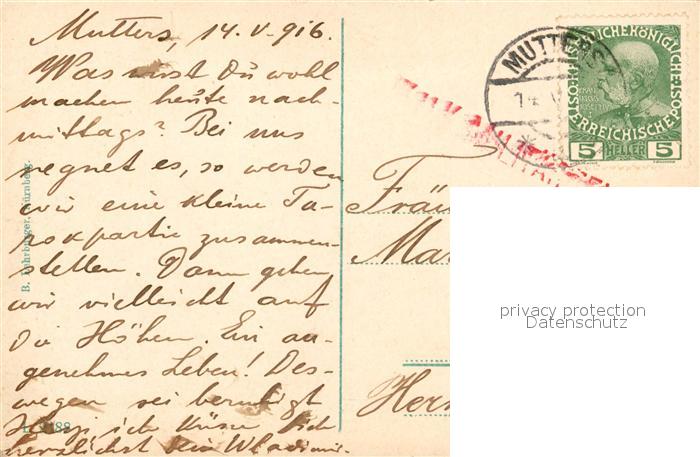 Mutters, 14. V. 916.
Was wirst Du wohl
machen heute nach-
mittags? Bei uns
regnet es, so werden
wir eine kleine Ta-
rokpartie zusammen-
stellen. Dann gehen
wir vielleicht auf
die Höhen. Ein an-
genehmes Leben! Des-
wegen sei beruhigt
ich küsse Dich
herzlichst Dein Wladimir.
B. Nürnberg.
MUTTERS
14 V
KAISERLICHEKÖNIGLICHE
ÖSTERREICHISCHE POST
5 HELLER 5
Fräu
Mar
Herr
privacy protection
Datenschutz